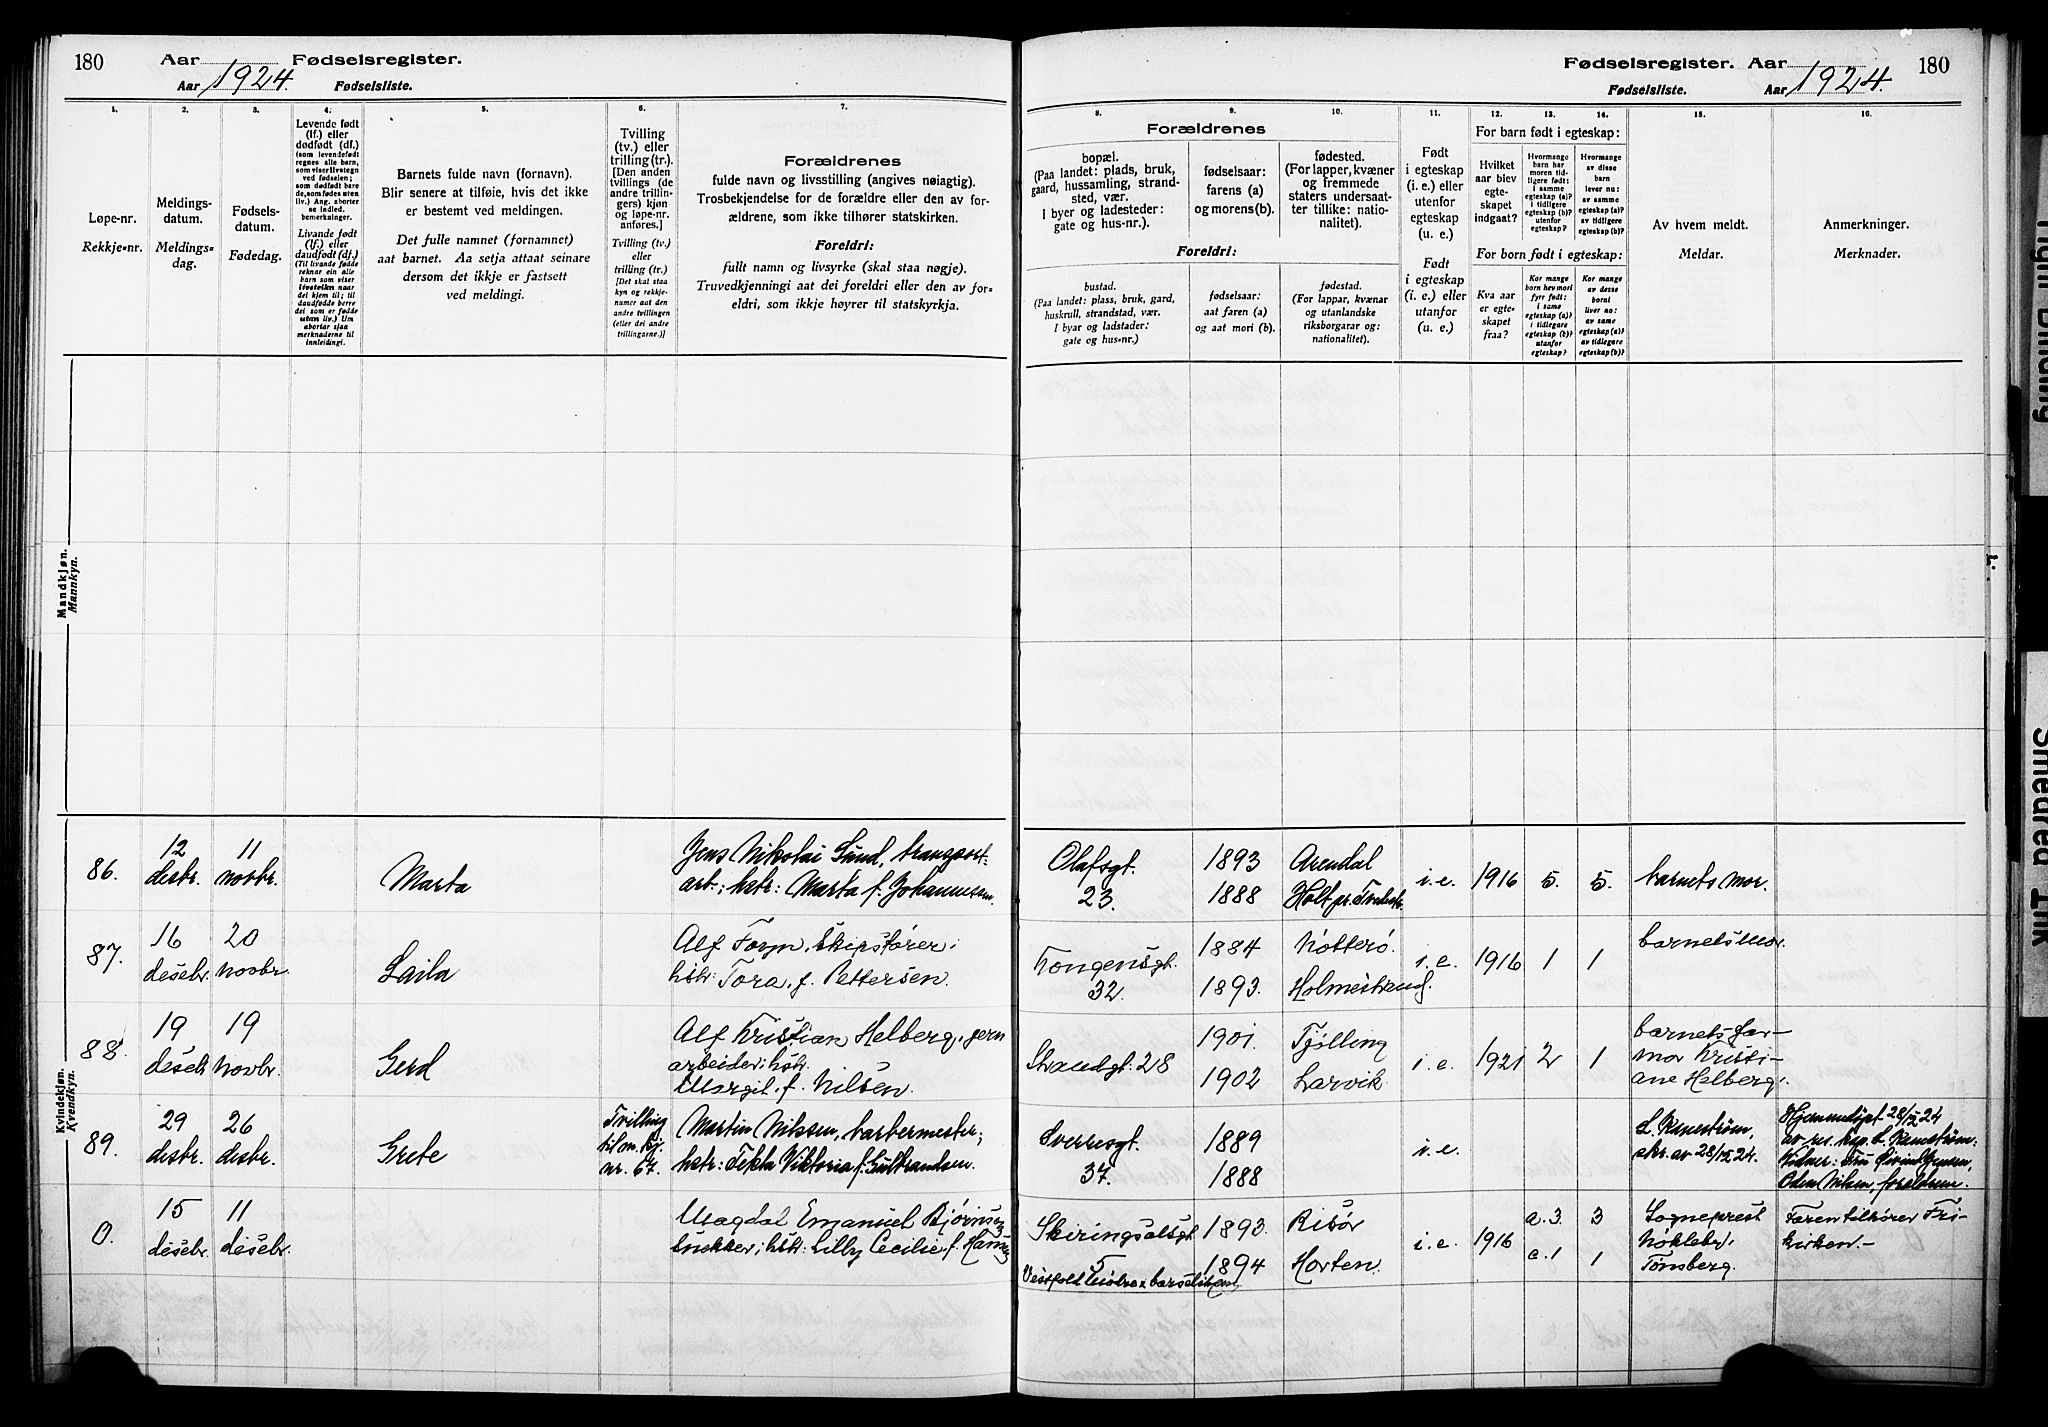 180 Aar Fødselsregister.
Aar 1924. Fødselsliste.
Fødselsregister. Aar 180
Fødselsliste. Aar 1924.
1. 2. 3. 4. 5. 6. 7.
Løpe-nr.
Rekkje-nr.
Meldings-
datum.
Meldings-
dag.
Fødsels-
datum.
Fødedag.
Levende født
(lf.) eller
dødfødt (df.)
(som levendefødt
regnes alle barn,
som viser livstegn
ved fødselen;
som dødfødt bare
de, som fødes uten
liv.) Ang. aborter
se indled.
bemerkninger.
Livande født
(lf.) eller
daudfødt (df.)
(Til livande fødde
reknar ein alle
barn som viser
livsteikn naar
dei kjem til; til
daudfødde berre
dei som er fødde
utan liv.) Um
abortar sjaa
merknaderne til
innleidingi.
Barnets fulde navn (fornavn).
Blir senere at tilføie, hvis det ikke
er bestemt ved meldingen.
Det fulle namnet (fornamnet)
aat barnet. Aa setja attaat seinare
dersom det ikkje er fastsett
ved meldingi.
Tvilling
(tv.) eller
trilling (tr.).
[Den anden
tvillings (de
andre trillin-
gers) kjøn
og løpe-nr.
anføres.]
Tvilling (tv.)
eller
trilling (tr.)
[Det skal staa
kyn og rekkje-
numer aat den
andre tvillingen
(eller dei andre
trillingarne.)]
Forældrenes
fulde navn og livsstilling (angives nøiagtig).
Trosbekjendelse for de forældre eller den av for-
ældrene, som ikke tilhører statskirken.
Foreldri:
fullt namn og livsyrke (skal staa nøgje).
Truvedkjenningi aat dei foreldri eller den av for-
eldri, som ikkje høyrer til statskyrkja.
8. 9. 10. 11. 12. 13. 14. 15. 16.
Forældrenes
bopæl.
(Paa landet: plads, bruk,
gaard, hussamling, strand-
sted, vær.
I byer og ladesteder:
gate og hus-nr.).
fødselsaar:
farens (a)
og morens (b).
fødested.
(For lapper, kvæner
og fremmede
staters undersaat-
ter tillike: natio-
nalitet).
Foreldri:
bustad.
(Paa landet: plass, bruk, gard,
huskrull, strandstad, vær.
I byar og ladstader:
gate og hus-nr.)
fødselsaar:
aat faren (a)
og aat mori (b).
fødestad.
(For lappar, kvænar
og utanlandske
riksborgarar og:
nationalitet).
Født
i egteskap
(i. e.) eller
utenfor
egteskap
(u. e.)
Født
i egteskap
(i. e.) eller
utanfor
(u. e.)
For barn født i egteskap:
Hvilket
aar blev
egte-
skapet
indgaat?
Hvormange
barn har
moren tid-
ligere født:
i samme
egteskap (a)?
i tidligere
egteskap (b)?
utenfor
egteskap?
Hvormange
av disse
barn
lever nu:
av samme
egteskap (a)?
av tidligere
egteskap (b)?
For born født i egteskap:
Kva aar
er egte-
skapet
fraa?
Kor mange
born hev mori
fyrr født:
i same
egteskap (a)?
i tidlegare
egteskap (b)?
utanfor
egteskap?
Kor mange
av desse
borni
liver no:
av same
egteskap (a)?
av tidlegare
egteskap (b)?
Av hvem meldt.
Meldar.
Anmerkninger.
Merknader.
Mandkjøn.
Mannkyn.
Kvindekjøn.
Kvendkyn.
86. 12 desbr. 11 novbr. Marta
Jens Nikolai Sund, transport-
arb.; hstr: Marta f. Johannesen.
Olafsgt. 23. 1893 Arendal
1888 Holt pr. Tvedestr.
i.e. 1916 5. 5. barnets mor.
87. 16 desebr. 20 novbr. Laila
Alf Foyn, skipsfører;
hstr: Tora, f. Pettersen.
Kongensgt. 32. 1884 Nøtterø.
1893. Holmestrand.
i.e. 1916 1 1 barnets mor.
88. 19 desebr 19 novbr. Gerd
Alf Kristian Helberg, jern
arbeider; hstr.
Margit, f. Nilsen.
Strandgt. 28 1901. Tjølling
1902 Larvik.
i.e. 1921 2 1
barnets far-
mor Kristi-
ane Helberg.
89. 29 desbr. 26 desbr. Grete
Tvilling
til m. kj.
nr. 67.
Martin Nilssen, barbermester;
hstr: Tekla Viktoria f. Gulbrandsen.
Sverresgt. 37. 1889
1888
i.e.
L. Ranestrøm,
skr. av 28/12 24.
Hjemmedøpt 28/12 24
av res. kap. L. Ranestrøm.
Vidner: Fru Øivind Jensen,
Oden Nilsen, foreldrene.
0. 15 desebr. 11 desebr.
Magdal Emanuel Bjørnsen
snekker; hstr: Lilly Cecilie f. Hansen
Skiringsalsgt 5 1893. Risør
1894 Horten.
Vestfold
i.e. 1916 a. 3. 3
a. 1 1
Sogneprest
Nøkleby,
Tønsberg.
Faren tilhører Fri-
kirken.-